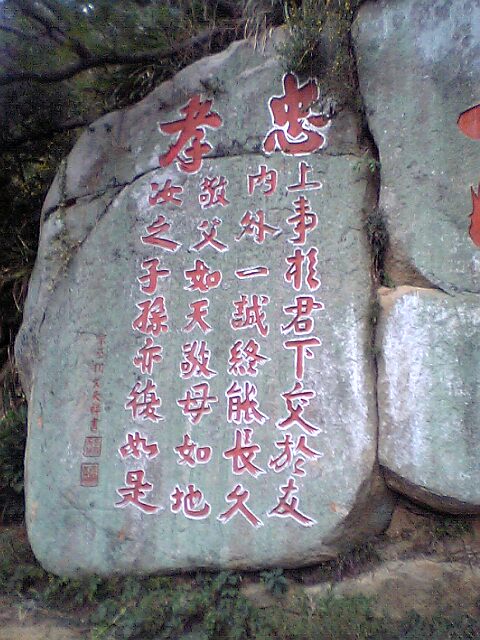 忠
上事於君下交於友
内外一誠終能長久
孝
敬父如天敬母如地
汝之子孫亦復如是